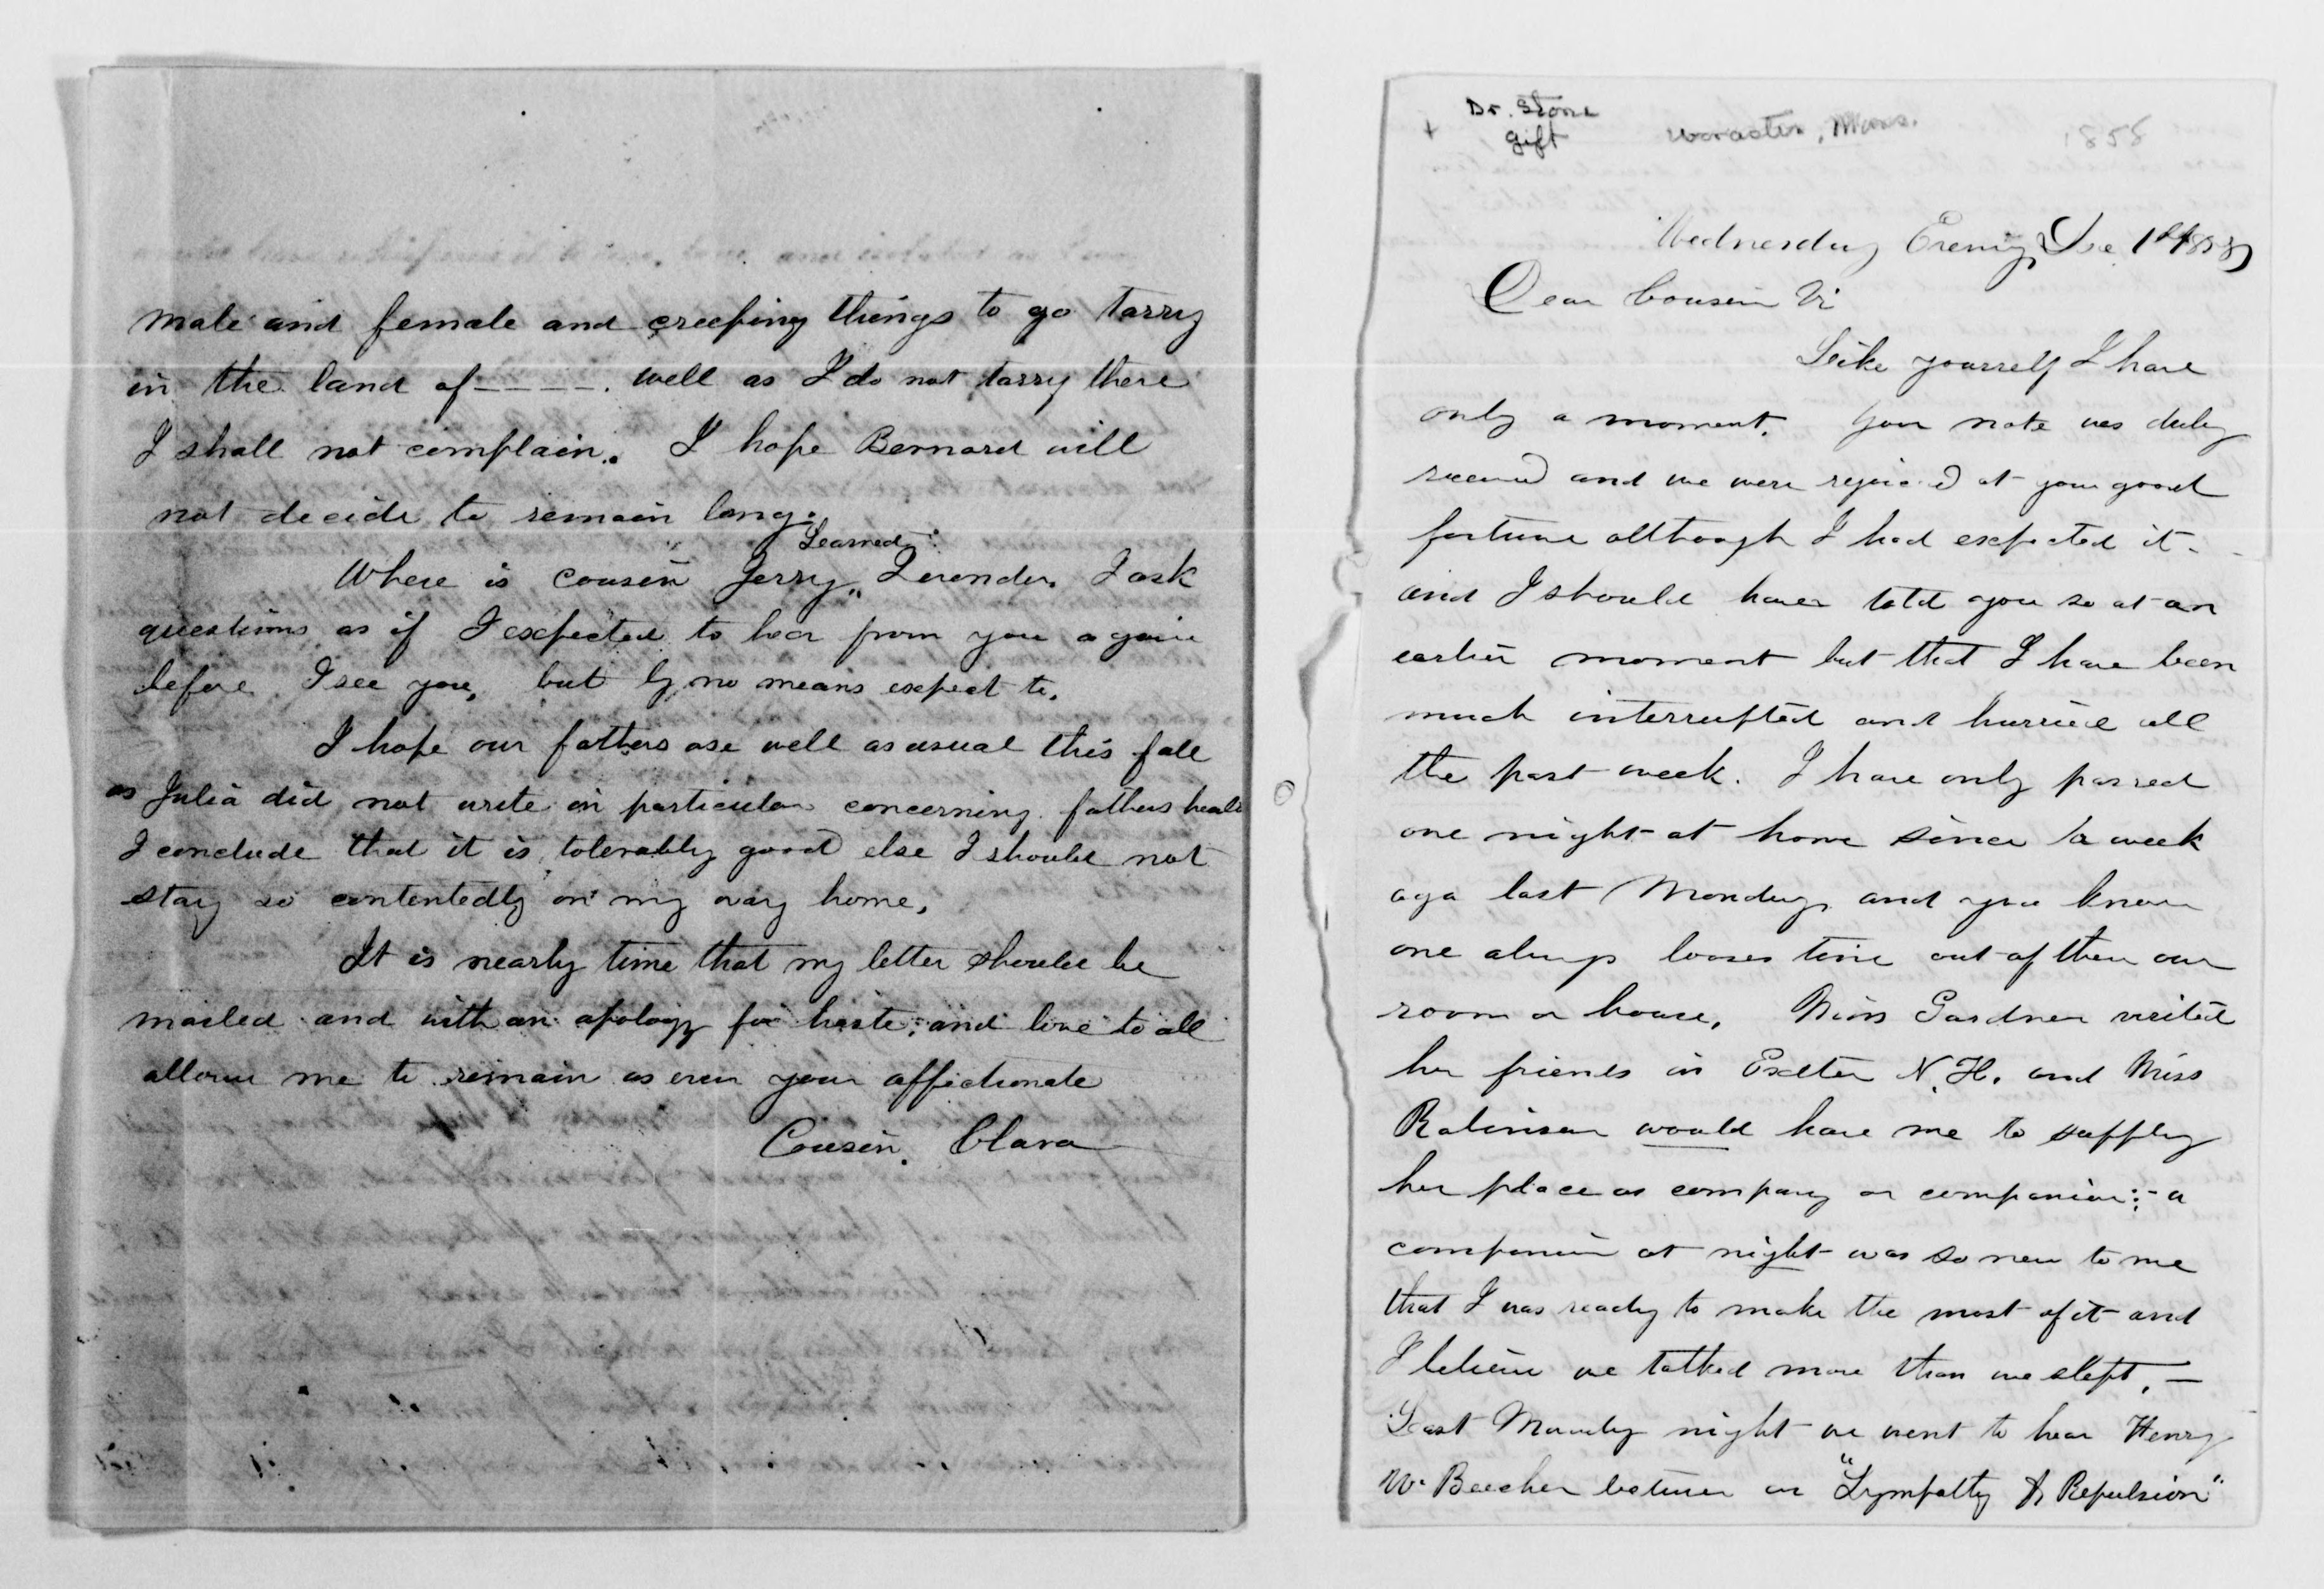 male and female and creeping things to go tarry
in the land of - - - - . well as I do not tarry there
I shall not complain. I hope Bernard will
not decide to remain long.
Learned
Where is cousin Jerry, Lerender. I ask
questions as if I expected to hear from you again
before I see you, but by no means expect to.
I hope our fathers are well as usual this fall
as Julia did not write in particular concerning fathers heal
I conclude that it is tolerably good else I should not
stay so contentedly on my way home.
It is nearly time that my letter should be
mailed and with an apology for haste, and love to all
allow me to remain as ever your affectionate
Cousin. Clara
+ Dr. Stone
gift
Worcester, Mass.
1858
Wednesday Evening Dec 1st 1858
Dear Cousin Vi
Like yourself I have
only a moment. Your note was duly
received and we were rejoiced at your good
fortune although I had expected it -
and I should have told you so at an
earlier moment but that I have been
much interrupted and hurried all
the past week. I have only passed
one night at home since a week
ago last Monday, and you know
one always looses time out of their own
room or house. Miss Gardner visited
her friends in Exeter N.H. and Miss
Robinson would have me to supply
her place as company or companion:- a
companion at night was so new to me
that I was ready to make the most of it and
I believe we talked more than we slept. —
Last Monday night we went to hear Henry
W. Beecher lecture on "Sympathy & Repulsion"